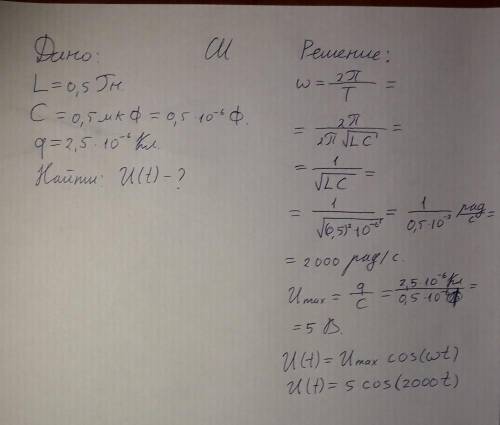 Дано: СИ Решение:
L = 0,5 Гн.
C = 0,5 мкФ = 0,5 · 10⁻⁶ Ф.
q = 2,5 · 10⁻⁶ Кл.
Найти: U(t) - ?
ω = 2π/T =
= 2π/(2π√LC) =
= 1/√LC =
= 1/√((0,5)² · 10⁻⁶) = 1/(0,5 · 10⁻³) рад/с =
= 2000 рад/с.
Umax = q/C = 2,5 · 10⁻⁶ Кл/0,5 · 10⁻⁶ Ф =
= 5 В.
U(t) = Umax cos(ωt)
U(t) = 5 cos(2000t)